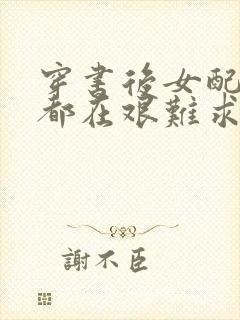 穿書後女配
都在艱難求
謝不臣